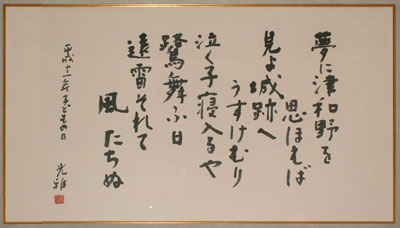 夢に津和野を
思ほえば
見よ城跡へ
うすけむり
泣く子寝入るや
鷺舞ふ日
遠雷それて
風たちぬ
平成十一年子どもの日
光雅